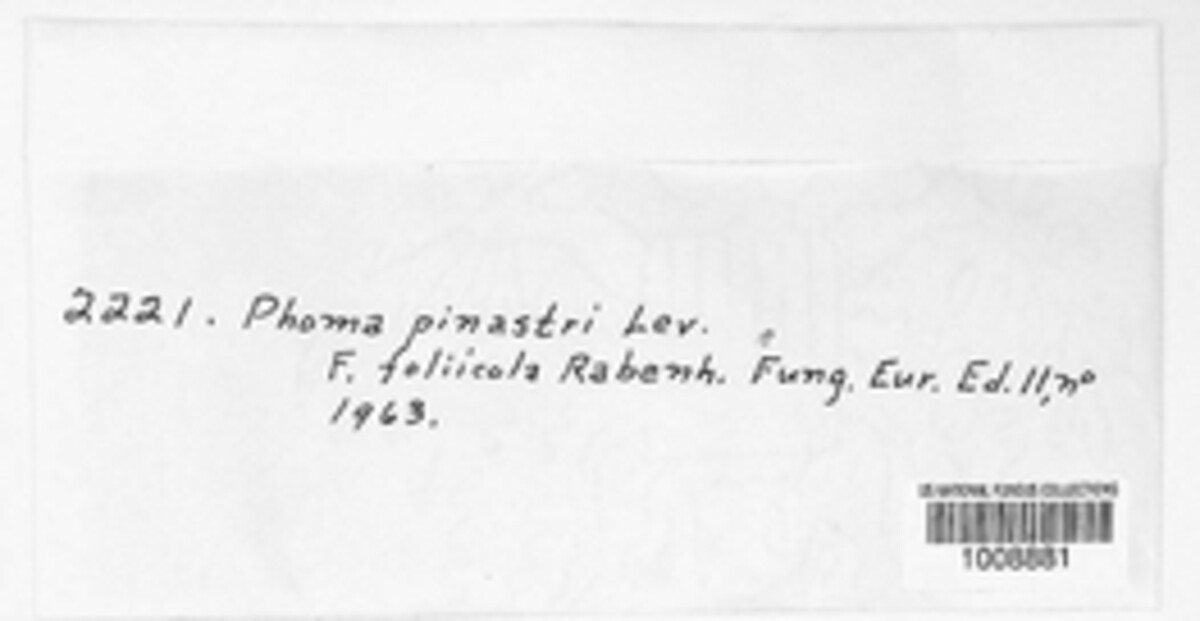 2221. Phoma pinastri Lev.
F. foliicola Rabenh. Fung. Eur. Ed. II, no
1963.
US NATIONAL FUNGUS COLLECTIONS
1008881